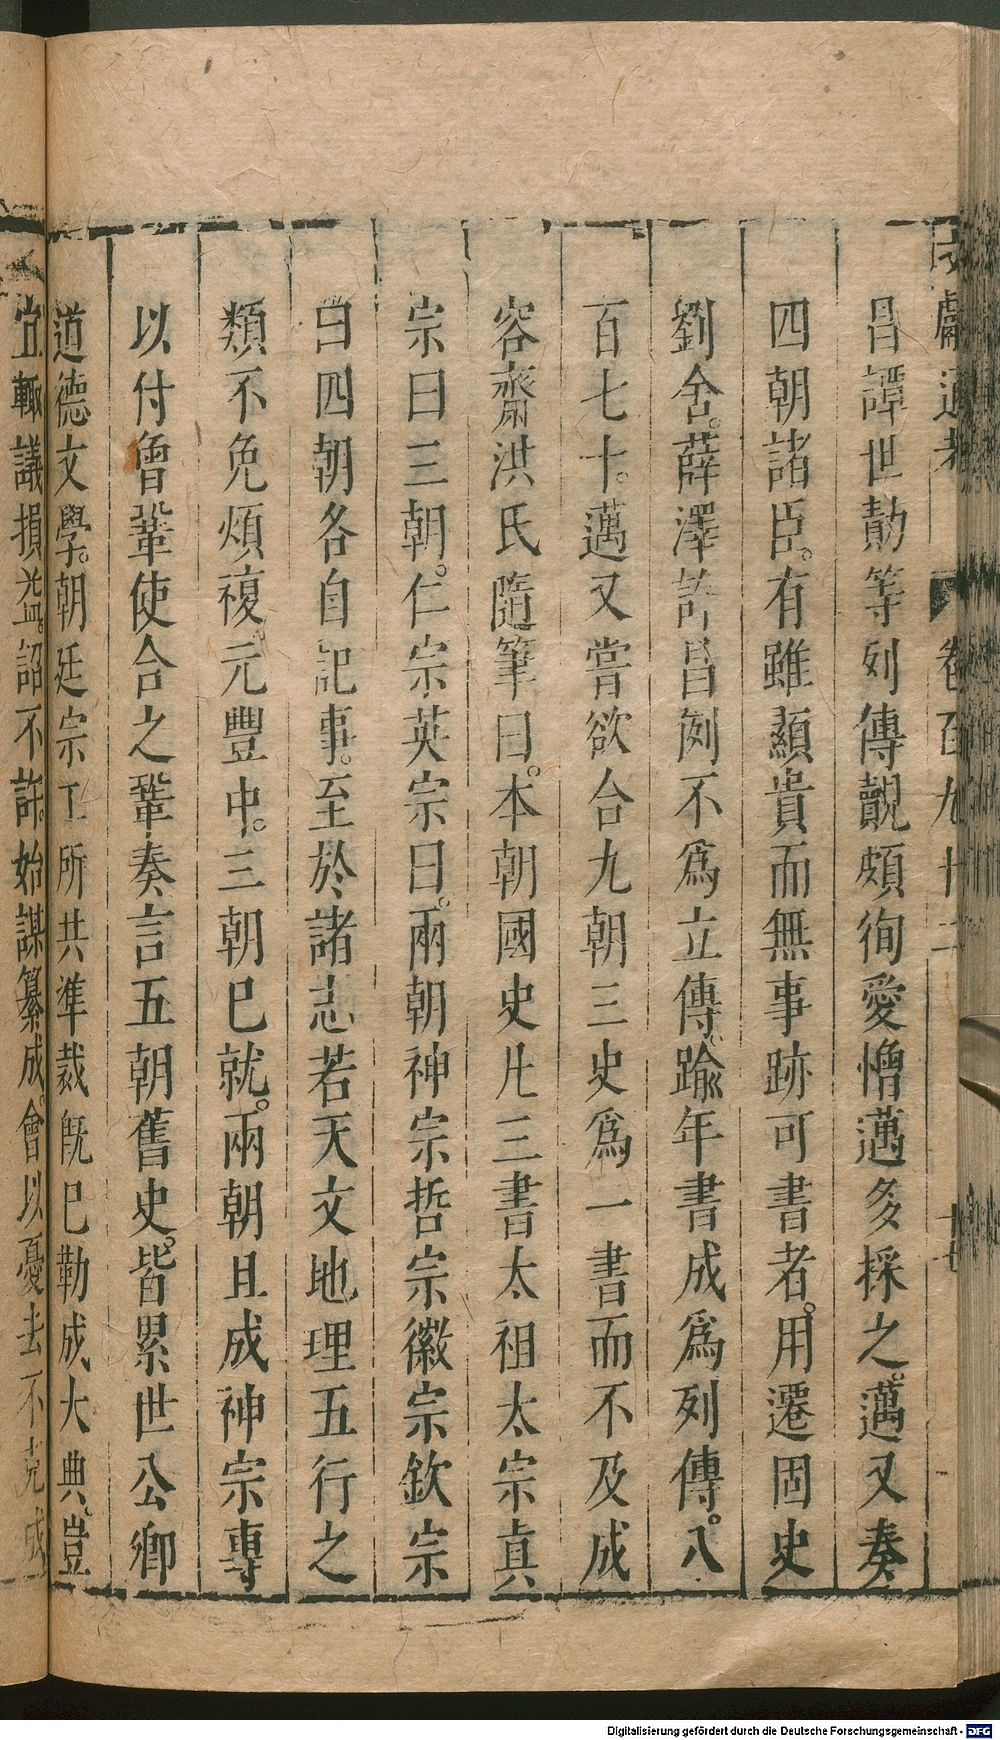 文獻通考 卷百九十二 十七
昌譚世勣等列傳覿頗徇愛憎邁多採之。邁又奏
四朝諸臣。有雖顯貴而無事跡可書者。用遷固史
劉舍。薛澤許昌例不爲立傳。踰年書成爲列傳。八
百七十。邁又嘗欲合九朝三史爲一書而不及成
容齋洪氏隨筆曰。本朝國史凡三書太祖太宗眞
宗曰三朝。仁宗英宗曰。兩朝神宗哲宗徽宗欽宗
曰四朝各自記事。至於諸志若天文地理五行之
類不免煩複元豐中。三朝已就。兩朝且成神宗專
以付曾鞏使合之鞏奏言五朝舊史。皆累世公卿
道德文學。朝廷宗工所共準裁旣已勒成大典。豈
宜輒議損益。詔不許。始謀纂成。會以憂去不克成
Digitalisierung gefördert durch die Deutsche Forschungsgemeinschaft - DFG